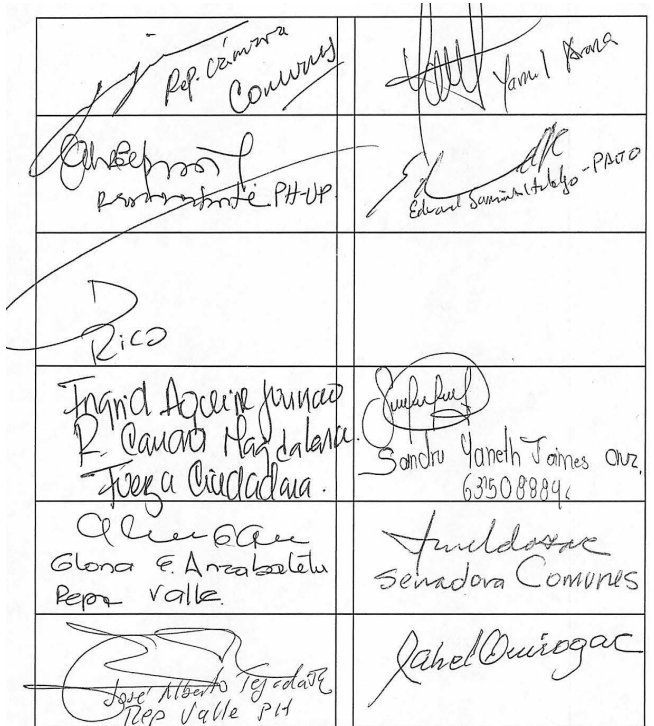 Rep. Cámara
Comunes
Yamil Arana
PH-UP.
Eduard Sarmiento Hidalgo - PACTO
Rico
Ingrid Aguirre Juvinao
R. Camara Magdalena.
Fuerza Ciudadana.
Sandra Yaneth Jaimes Cruz.
Gloria E. Arizabaleta
Repr Valle.
Senadora Comunes
José Alberto Tejada E
Rep Valle PH
Jahel Quirogac